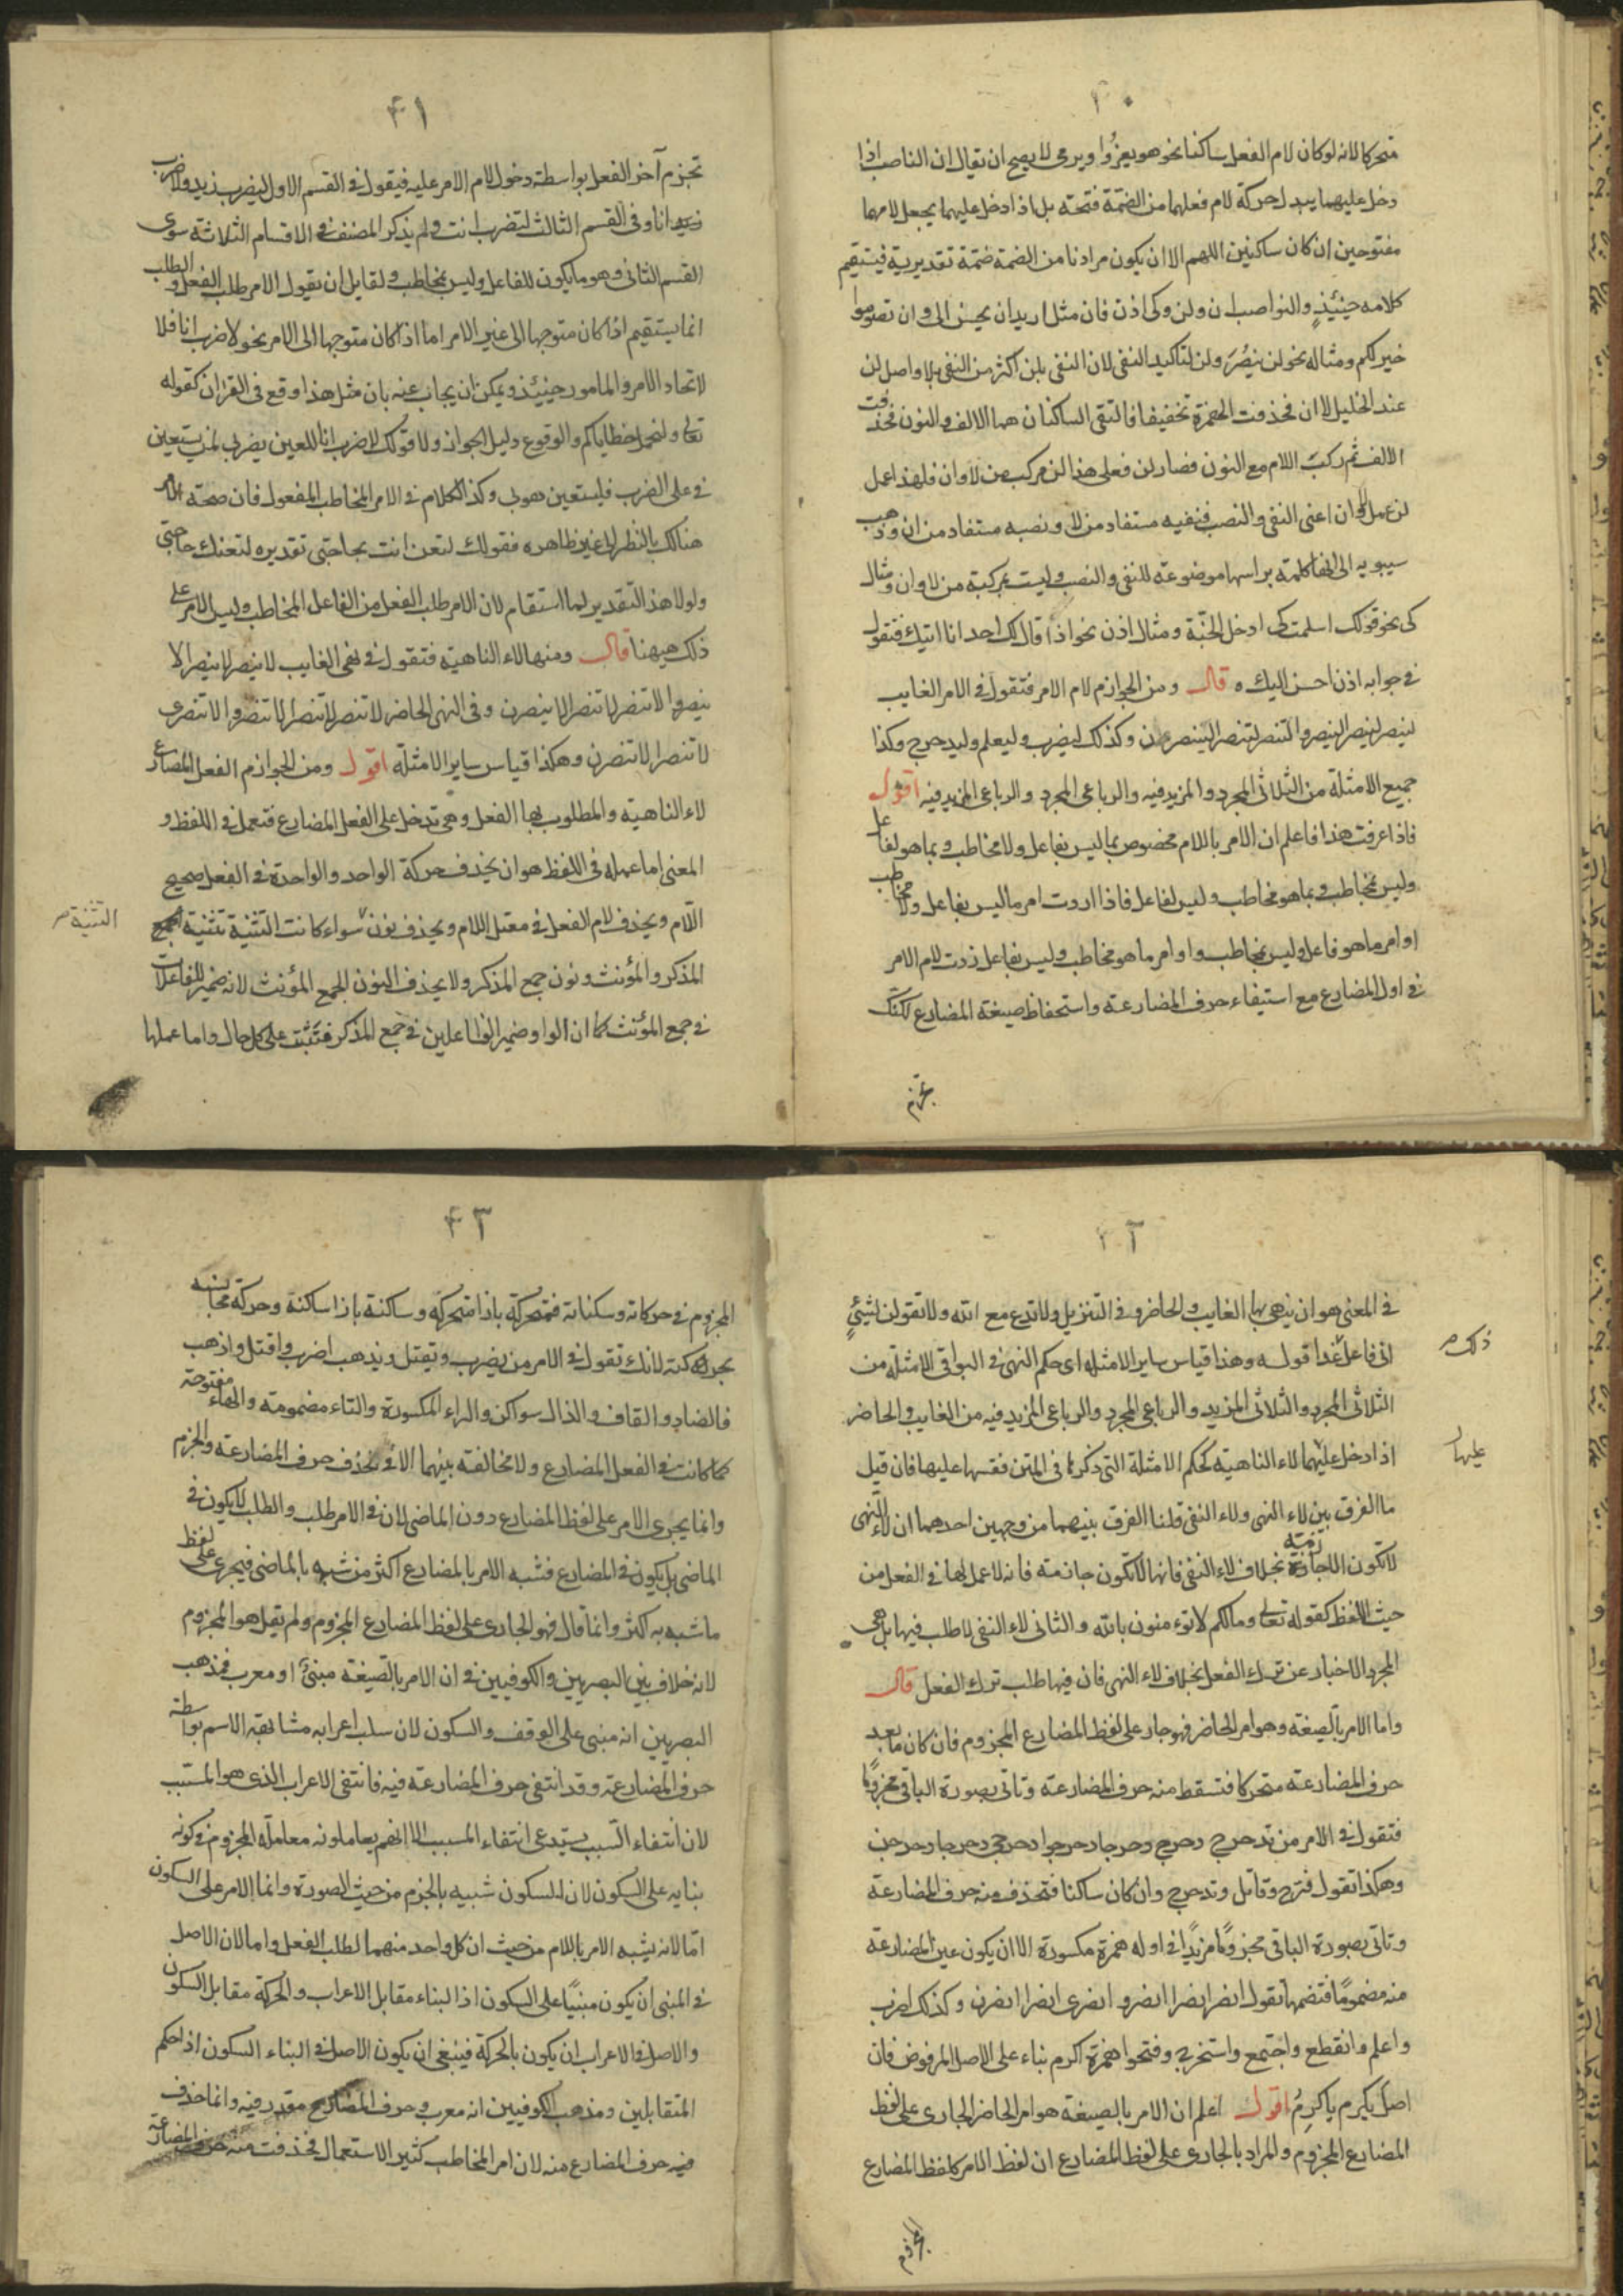 ٤٠
متحركا لانه لو كان لام الفعل ساكنا نحو هو يغزُوا ويرمى لا يصح ان يقال ان الناصب اذا
دخل عليهما يبدل حركة لام فعلهما من الضمّة فتحة بل اذا دخل عليهما يجعل لامهما
مفتوحين ان كان ساكنين اللهم الا ان يكون مرادنا من الضمة ضمّة تقديرية فيستقيم
كلامه حينئذٍ والنواصب ان ولن وكى اذن فان مثل اريد ان يحسن الى وان تصوموا
خير لكم ومثاله نحو لن ينصُرَ ولن لتاكيد النفى لان النفى بلن اكثر من النفى بلا واصل لن
عند الخليل لا ان فحذفت الهمزة تخفيفا فالتقى الساكنان هما الالف والنون فحذفت
الالف ثم ركبَ اللام مع النون فصار لن فعلى هذا لن مركب من لا وان فلهذا عمل
لن عمل لا وان اعنى النفى والنصب فنفيه مستفاد من لا ونصبه مستفاد من ان وذهب
سيبويه الى انها كلمة براسها موضوعة للنفى والنصب وليست بمركبة من لا وان ومثال
كى نحو قولك اسلمت كى ادخل الجنّة ومثال اذن نحو اذا قال لك احد انا اتيك فتقول
فى جوابه اذن احسن اليك ه قال ومن الجوازم لام الامر فتقول فى الامر الغايب
لينصر لينصرا لينصروا لتنصر لتنصرا لينصرن وكذلك ليضرب وليعلم وليدحرج وكذا
جميع الامثلة من الثلاثى المجرد والمزيد فيه والرباعى المجرد والرباعى المزيد فيه اقول
فاذا عرفت هذا فاعلم ان الامر باللام مخصوص بما ليس بفاعل ولا مخاطب وبما هو لفاعل
وليس بمخاطب وبما هو مخاطب وليس لفاعل فاذا اردت امر ما ليس بفاعل ولا مخاطب
او امر ما هو فاعل وليس بمخاطب او امر ما هو مخاطب وليس بفاعل زدت لام الامر
فى اول المضارع مع استيفاء حرف المضارعة واستحفاظ صيغة المضارع لكنّك
تجزم
٤١
تجزم آخر الفعل بواسطة دخول لام الامر عليه فيقول فى القسم الاول ليضرب زيد ولاضرب
زيد انا وفى القسم الثالث لتضرب انت ولم يذكر المصنف فى الاقسام الثلاثة سوى
القسم الثانى وهو ما يكون للفاعل وليس بمخاطب ولقايل ان يقول الامر طلب الفعل والطلب
انما يستقيم اذا كان متوجها الى غير الامر اما اذا كان متوجها الى الامر نحو لاضرب انا فلا
لاتحاد الامر والمامور حينئذ ويمكن ان يجاب عنه بان مثل هذا وقع فى القران كقوله
تعالى ولنحمل خطاياكم والوقوع دليل الجواز ولا قولك لاضرب انا للعين يضربى لمن يستعين
فى على الضرب فليستعين هو بى وكذا الكلام فى الامر المخاطب المفعول فان صحة الامر
هناك بالنظر الى غير ظاهره فقولك لتعن انت بحاجتى تقديره لتعنك حاجتى
ولولا هذا التقدير لما استقام لان الامر طلب الفعل من الفاعل المخاطب وليس الامر على
ذلك هيهنا قال ومنها لاء الناهية فتقول فى نهى الغايب لا ينصر لا ينصرا لا
ينصروا لا تنصر لا تنصرا لا ينصرن وفى النهى الحاضر لا تنصر لا تنصرا لا تنصروا لا تنصرى
لا تنصرا لا تنصرن وهكذا قياس ساير الامثلة اقول ومن الجوازم الفعل المضارع
لاء الناهية والمطلوب بها الفعل وهى تدخل على الفعل المضارع فتعمل فى اللفظ و
المعنى اما عمله فى اللفظ هو ان يحذف حركة الواحد والواحدة فى الفعل صحيح
اللّام ويحذف لام الفعل فى معتل اللام ويحذف نون سواء كانت التثنية تثنية الجمع
التثنية صح
المذكر والمؤنث ونون جمع المذكر ولا يحذف النون الجمع المؤنث لانه ضمير للفاعلات
فى جمع المؤنث كما ان الواو ضمير الفاعلين فى جمع المذكر فتَثبُت على كل حال واما عملها
٤٢
فى المعنى هو ان ينهى بها الغايب والحاضر وفى التنزيل ولا تدع مع الله ولا تقولن لشئٍ
انى فاعل غدا قوله وهذا قياس ساير الامثله اى حكم النهى فى البواقى الامثلة من
ذلك صح
الثلاثى المجرد والثلاثى المزيد والرباعى المجرد والرباعى المزيد فيه من الغايب والحاضر
اذا دخل عليهما لاء الناهية كحكم الامثلة التى ذكرها فى المتن فقسها عليها فان قيل
عليها
ما الفرق بين لاء النهى ولاء النفى قلنا الفرق بينهما من وجهين احدهما ان لاء النهى
لا تكون الا جازمة بخلاف لاء النفى فانها لا تكون جازمة فانه لا عمل لها فى الفعل من
حيث اللفظ كقوله تعالى وما لكم لا تؤمنون بالله والثانى لاء النفى لا طلب فيها بل هى
المجرد الاخبار عن ترك الفعل بخلاف لاء النهى فان فيها طلب ترك الفعل قال
واما الامر بالصيغة وهو امر الحاضر فهو جار على لفظ المضارع المجزوم فان كان ما بعد
حرف المضارعة متحركا فتسقط منه حرف المضارعة وتاتى بصورة الباقى مجزومًا
فتقول فى الامر من تدحرج دحرج دحرجا دحرجوا دحرجى دحرجا دحرجن
وهكذا تقول فرّح وقاتل وتدحرج وان كان ساكنا فتحذف منه حرف المضارعة
وتاتى بصورة الباقى مجزومًا مزيدًا فى اوله همزة مكسورة الا ان يكون عين المضارعة
منه مضمومًا فتضمها تقول انصر انصرا انصروا انصرى انصرا انصرن وكذلك اضرب
واعلم وانقطع واجتمع واستخرج وفتحوا همزة اكرم بناء على الاصل المرفوض فان
اصل يكرم ياكرِمُ اقول اعلم ان الامر بالصيغة هو امر الحاضر الجارى على لفظ
المضارع المجزوم والمراد بالجارى على لفظ المضارع ان لفظ الامر كلفظ المضارع
المجزوم
٤٣
المجزوم فى حركاته وسكناته فمتحركة باذا متحركه وساكنة بازا ساكنة وحركة مجانسه
بحركته لانك تقول فى الامر من يضرب ويقتل ويذهب اضرب واقتل واذهب
فالضاد والقاف والذال سواكن والراء المكسورة والتاء مضمومة والهاء مفتوحة
كما كانت فى الفعل المضارع ولا مخالفة بينهما الا فى حذف حرف المضارعة والجزم
وانما يجرى الامر على لفظ المضارع دون الماضى لان فى الامر طلب والطلب لا يكون فى
الماضى بل يكون فى المضارع فشبه الامر بالمضارع اكثر من شبه بالماضى فيجرى على لفظ
ما شبه به اكثر وانما قال فهو الجارى على لفظ المضارع المجزوم ولم يقل هو المجزوم
لانه خلاف بين البصريين والكوفيين فى ان الامر بالصيغة مبنىٌ او معرب فمذهب
البصريين انه مبنى على الوقف والسكون لان سلب اعرابه مشابقة الاسم بواسطة
حرف المضارعة وقد انتفى حرف المضارعة فيه فانتفى الاعراب الذى هو المسبب
لان انتفاء السبب يستدعى انتفاء المسبب الا انهم يعاملونه معاملة المجزوم فى كونه
بنايه على السكون لان السكون شبيه بالجزم من حيث الصورة وانما الامر على السكون
امّا لانه يشبه الامر باللام من حيث ان كل واحد منهما لطلب الفعل واما لان الاصل
فى المبنى ان يكون مبنيًا على السكون اذ البناء مقابل الاعراب والحركة مقابل السكون
والاصل فى الاعراب ان يكون بالحركة فينبغى ان يكون الاصل فى البناء السكون اذ احكم
المتقابلين ومذهب الكوفيين انه معرب وحرف المضارع مقدر فيه وانما حذف
فيه حرف المضارع منه لان امر المخاطب كثير الاستعمال فحذفت منه حرف المضارعة